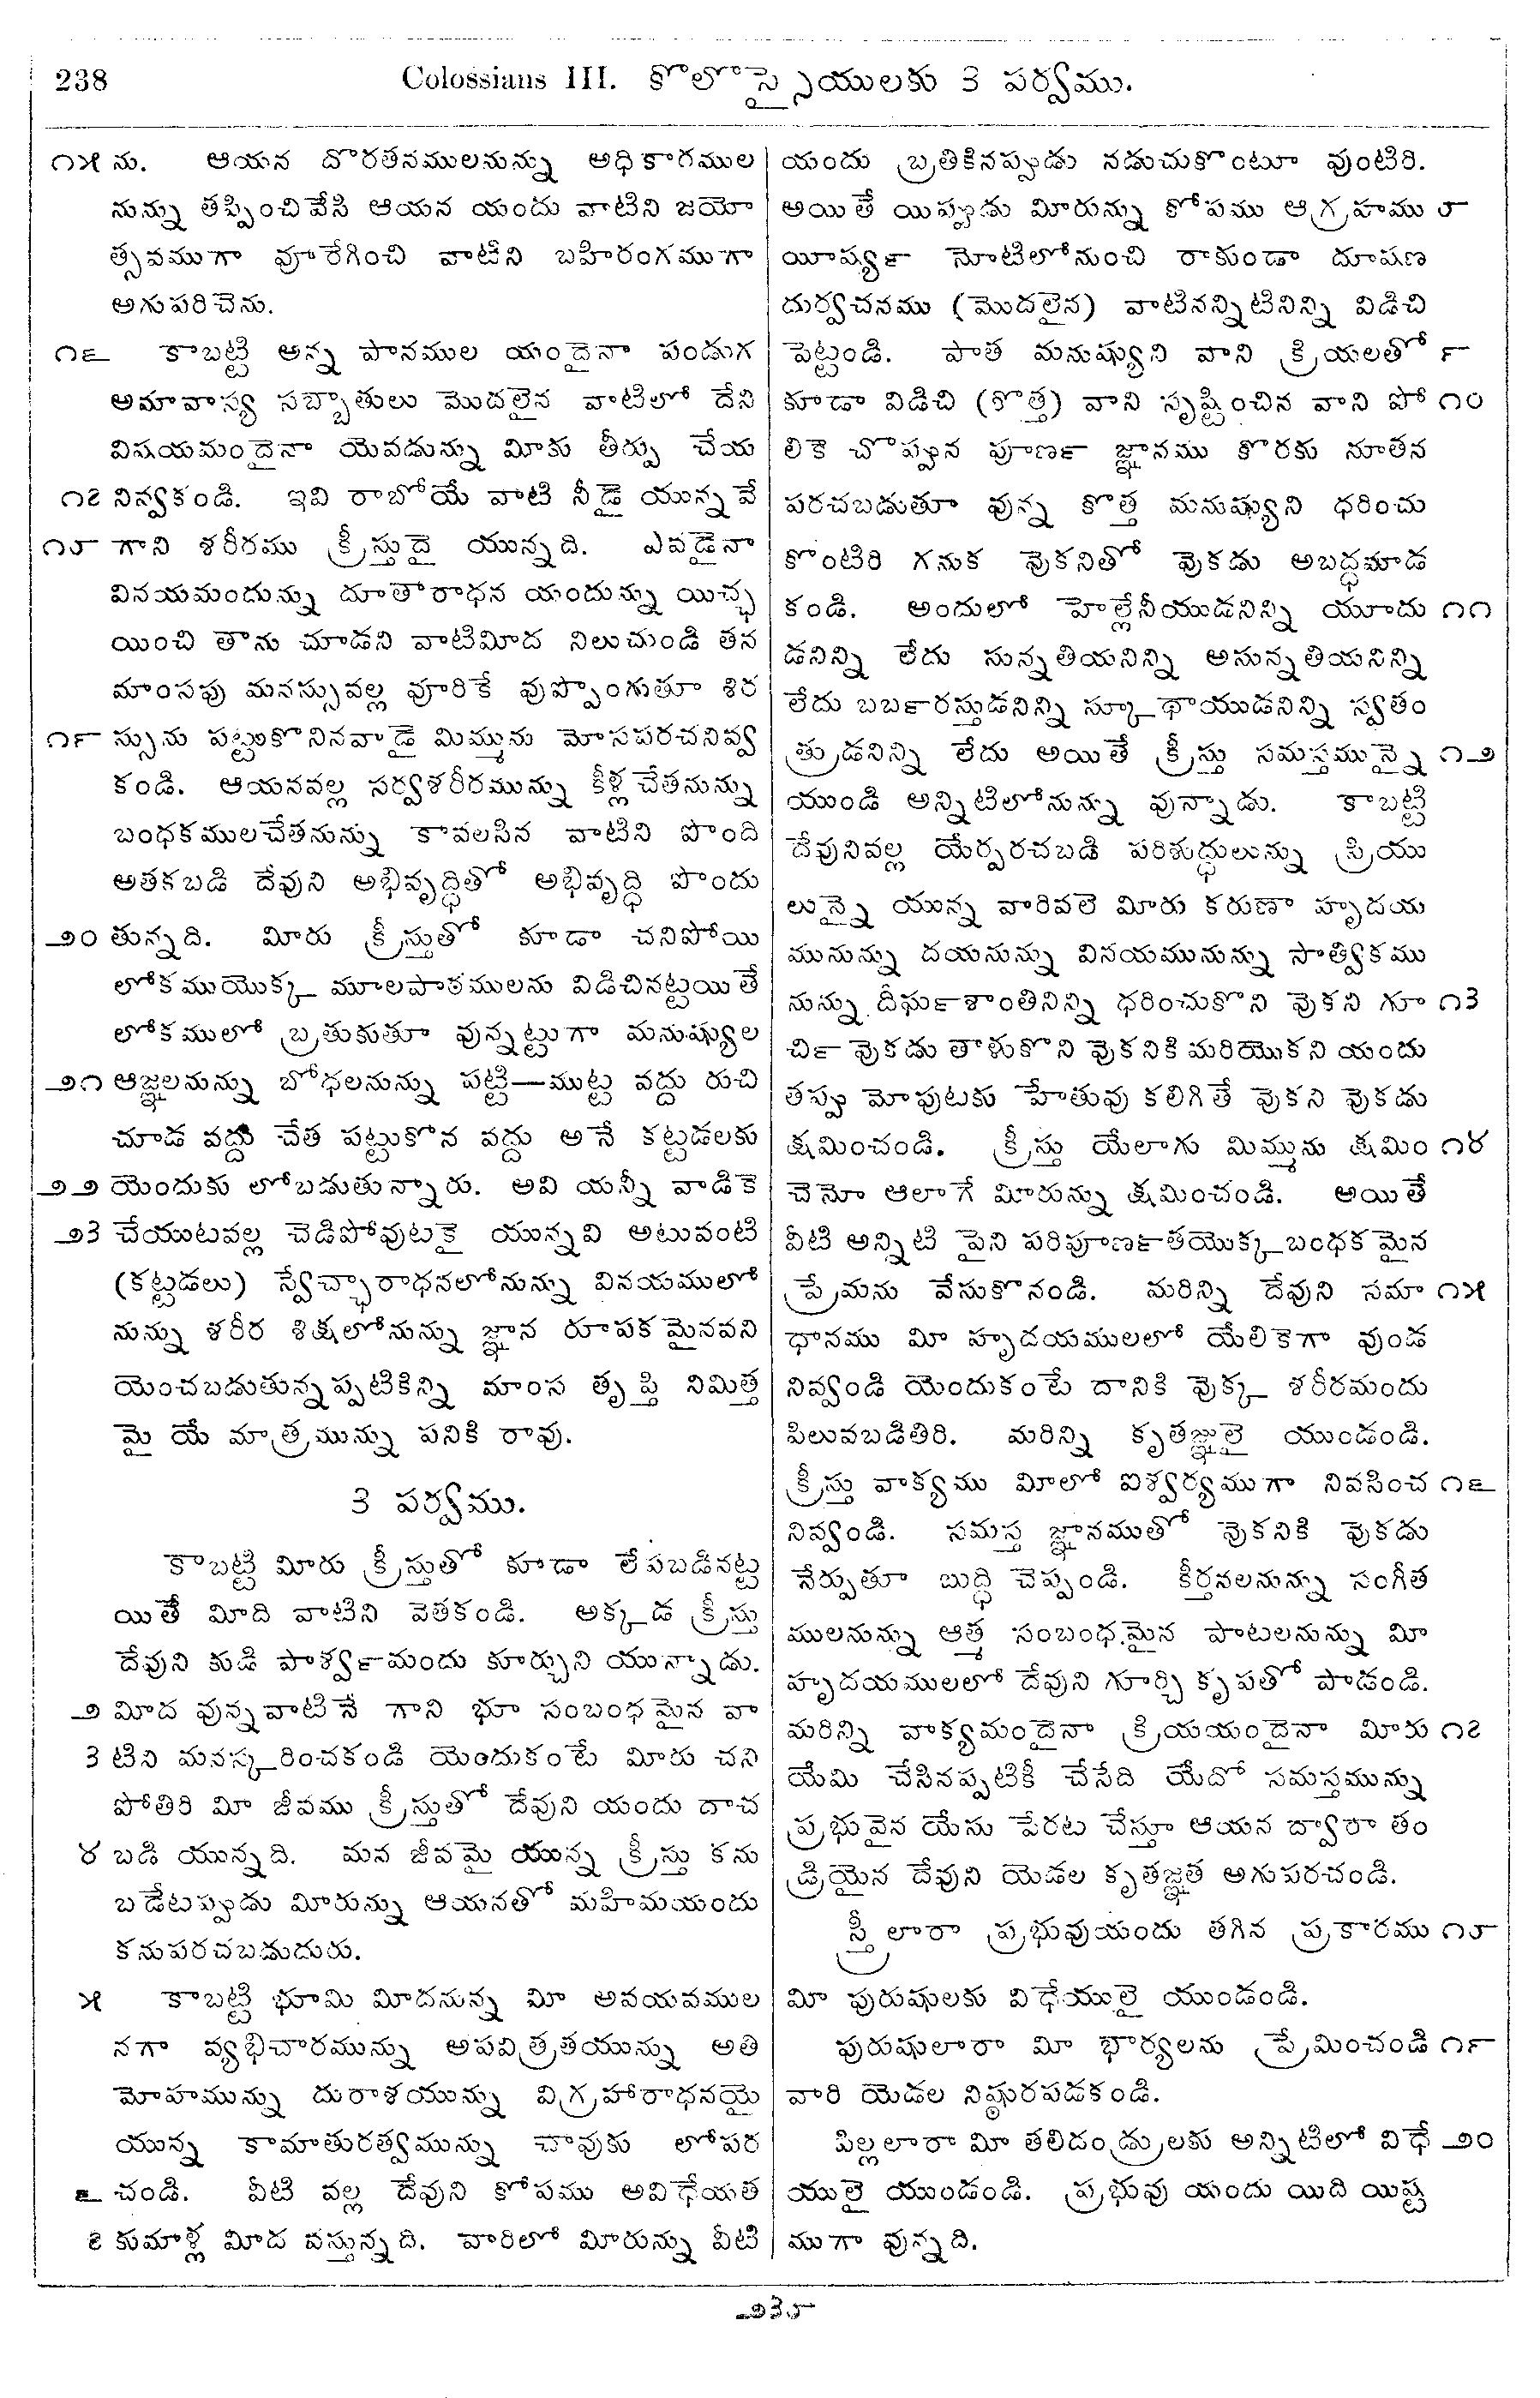 238 Colossians III. కొలొస్సైయులకు 3 పర్వము.
౧౫ ను. ఆయన దొరతనములనున్ను అధికారముల
నున్ను తప్పించివేసి ఆయన యందు వాటిని జయో
త్సవముగా వూరేగించి వాటిని బహిరంగముగా
అగుపరిచెను.
౧౬ కాబట్టి అన్న పానముల యందైనా పండుగ
అమావాస్య సబ్బాతులు మొదలైన వాటిలో దేని
విషయమందైనా యెవడున్ను మీకు తీర్పు చేయ
౧౭ నివ్వకండి. ఇవి రాబోయే వాటి నీడై యున్నవే
౧౮ గాని శరీరము క్రీస్తుదై యున్నది. ఎవడైనా
వినయమందున్ను దూతారాధన యందున్ను యిచ్ఛ
యించి తాను చూడని వాటిమీద నిలుచుండి తన
మాంసపు మనస్సువల్ల వూరికే వుప్పొంగుతూ శిర
౧౯ స్సును పట్టుకొనినవాడై మిమ్మును మోసపరచనివ్వ
కండి. ఆయనవల్ల సర్వశరీరమున్ను కీళ్లచేతనున్ను
బంధకములచేతనున్ను కావలసిన వాటిని పొంది
అతకబడి దేవుని అభివృద్ధితో అభివృద్ధి పొందు
౨౦ తున్నది. మీరు క్రీస్తుతో కూడా చనిపోయి
లోకముయొక్క మూలపాఠములను విడిచినట్టయితే
లోకములో బ్రతుకుతూ వున్నట్టుగా మనుష్యుల
౨౧ ఆజ్ఞలనున్ను బోధలనున్ను పట్టి—ముట్ట వద్దు రుచి
చూడ వద్దు చేత పట్టుకొన వద్దు అనే కట్టడలకు
౨౨ యెందుకు లోబడుతున్నారు. అవి యన్నీ వాడికె
౨౩ చేయుటవల్ల చెడిపోవుటకై యున్నవి అటువంటి
(కట్టడలు) స్వేచ్ఛారాధనలోనున్ను వినయములో
నున్ను శరీర శిక్షలోనున్ను జ్ఞాన రూపకమైనవని
యెంచబడుతున్నప్పటికిన్ని మాంస తృప్తి నిమిత్త
మై యే మాత్రమున్ను పనికి రావు.
3 పర్వము.
కాబట్టి మీరు క్రీస్తుతో కూడా లేపబడినట్ట
యితే మీది వాటిని వెతకండి. అక్కడ క్రీస్తు
దేవుని కుడి పార్శ్వమందు కూర్చుని యున్నాడు.
౨ మీద వున్నవాటినే గాని భూ సంబంధమైన వా
౩ టిని మనస్కరించకండి యెందుకంటే మీరు చని
పోతిరి మీ జీవము క్రీస్తుతో దేవుని యందు దాచ
౪ బడి యున్నది. మన జీవమై యున్న క్రీస్తు కను
బడేటప్పుడు మీరున్ను ఆయనతో మహిమయందు
కనుపరచబడుదురు.
౫ కాబట్టి భూమి మీదనున్న మీ అవయవముల
నగా వ్యభిచారమున్ను అపవిత్రతయున్ను అతి
మోహమున్ను దురాశయున్ను విగ్రహారాధనయై
యున్న కామాతురత్వమున్ను చావుకు లోపర
౬ చండి. వీటి వల్ల దేవుని కోపము అవిధేయత
౭ కుమాళ్ల మీద వస్తున్నది. వారిలో మీరున్ను వీటి
యందు బ్రతికినప్పుడు నడుచుకొంటూ వుంటిరి.
అయితే యిప్పుడు మీరున్ను కోపము ఆగ్రహము ౮
యీర్ష్య నోటిలోనుంచి రాకుండా దూషణ
దుర్వచనము (మొదలైన) వాటినన్నిటినిన్ని విడిచి
పెట్టండి. పాత మనుష్యుని వాని క్రియలతో ౯
కూడా విడిచి (కొత్త) వాని సృష్టించిన వాని పో ౧౦
లికె చొప్పున పూర్ణ జ్ఞానము కొరకు నూతన
పరచబడుతూ వున్న కొత్త మనుష్యుని ధరించు
కొంటిరి గనుక వొకనితో వొకడు అబద్ధమాడ
కండి. అందులో హెల్లేనీయుడనిన్ని యూదు ౧౧
డనిన్ని లేదు సున్నతియనిన్ని అసున్నతియనిన్ని
లేదు బర్బరస్తుడనిన్ని స్కూథాయుడనిన్ని స్వతం
త్రుడనిన్ని లేదు అయితే క్రీస్తు సమస్తమున్నై ౧౨
యుండి అన్నిటిలోనున్ను వున్నాడు. కాబట్టి
దేవునివల్ల యేర్పరచబడి పరిశుద్ధులున్ను ప్రియు
లున్నై యున్న వారివలె మీరు కరుణా హృదయ
మునున్ను దయనున్ను వినయమునున్ను సాత్వికము
నున్ను దీర్ఘశాంతినిన్ని ధరించుకొని వొకని గూ ౧౩
ర్చి వొకడు తాళుకొని వొకనికి మరియొకని యందు
తప్పు మోపుటకు హేతువు కలిగితే వొకని వొకడు
క్షమించండి. క్రీస్తు యేలాగు మిమ్మును క్షమిం ౧౪
చెనో ఆలాగే మీరున్ను క్షమించండి. అయితే
వీటి అన్నిటి పైని పరిపూర్ణతయొక్క బంధకమైన
ప్రేమను వేసుకొనండి. మరిన్ని దేవుని సమా ౧౫
ధానము మీ హృదయములలో యేలికెగా వుండ
నివ్వండి యెందుకంటే దానికి వొక్క శరీరమందు
పిలువబడితిరి. మరిన్ని కృతజ్ఞులై యుండండి.
క్రీస్తు వాక్యము మీలో ఐశ్వర్యముగా నివసించ ౧౬
నివ్వండి. సమస్త జ్ఞానముతో వొకనికి వొకడు
నేర్పుతూ బుద్ధి చెప్పండి. కీర్తనలనున్ను సంగీత
ములనున్ను ఆత్మ సంబంధమైన పాటలనున్ను మీ
హృదయములలో దేవుని గూర్చి కృపతో పాడండి.
మరిన్ని వాక్యమందైనా క్రియయందైనా మీరు ౧౭
యేమి చేసినప్పటికీ చేసేది యేదో సమస్తమున్ను
ప్రభువైన యేసు పేరట చేస్తూ ఆయన ద్వారా తం
డ్రియైన దేవుని యెడల కృతజ్ఞత అగుపరచండి.
స్త్రీలారా ప్రభువుయందు తగిన ప్రకారము ౧౮
మీ పురుషులకు విధేయులై యుండండి.
పురుషులారా మీ భార్యలను ప్రేమించండి ౧౯
వారి యెడల నిష్ఠురపడకండి.
పిల్లలారా మీ తలిదండ్రులకు అన్నిటిలో విధే ౨౦
యులై యుండండి. ప్రభువు యందు యిది యిష్ట
ముగా వున్నది.
౨౩౮